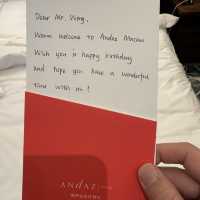 Dear Mr. Wong,
Warm welcome to Andaz Macau
Wish you a happy birthday
and hope you have a wonderful
time with us!
ANDAZ